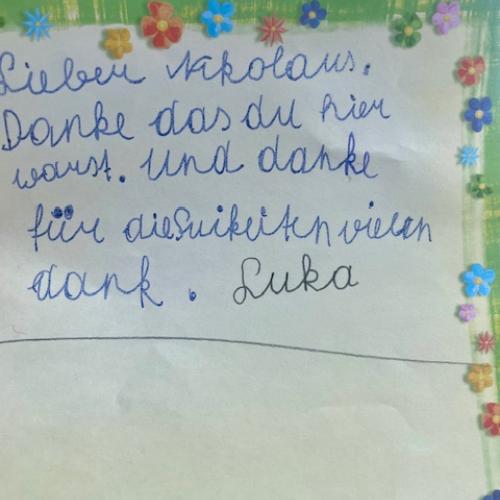 Lieber Nikolaus.
Danke das du hier
warst. Und danke
für die vielen
dank. Luka